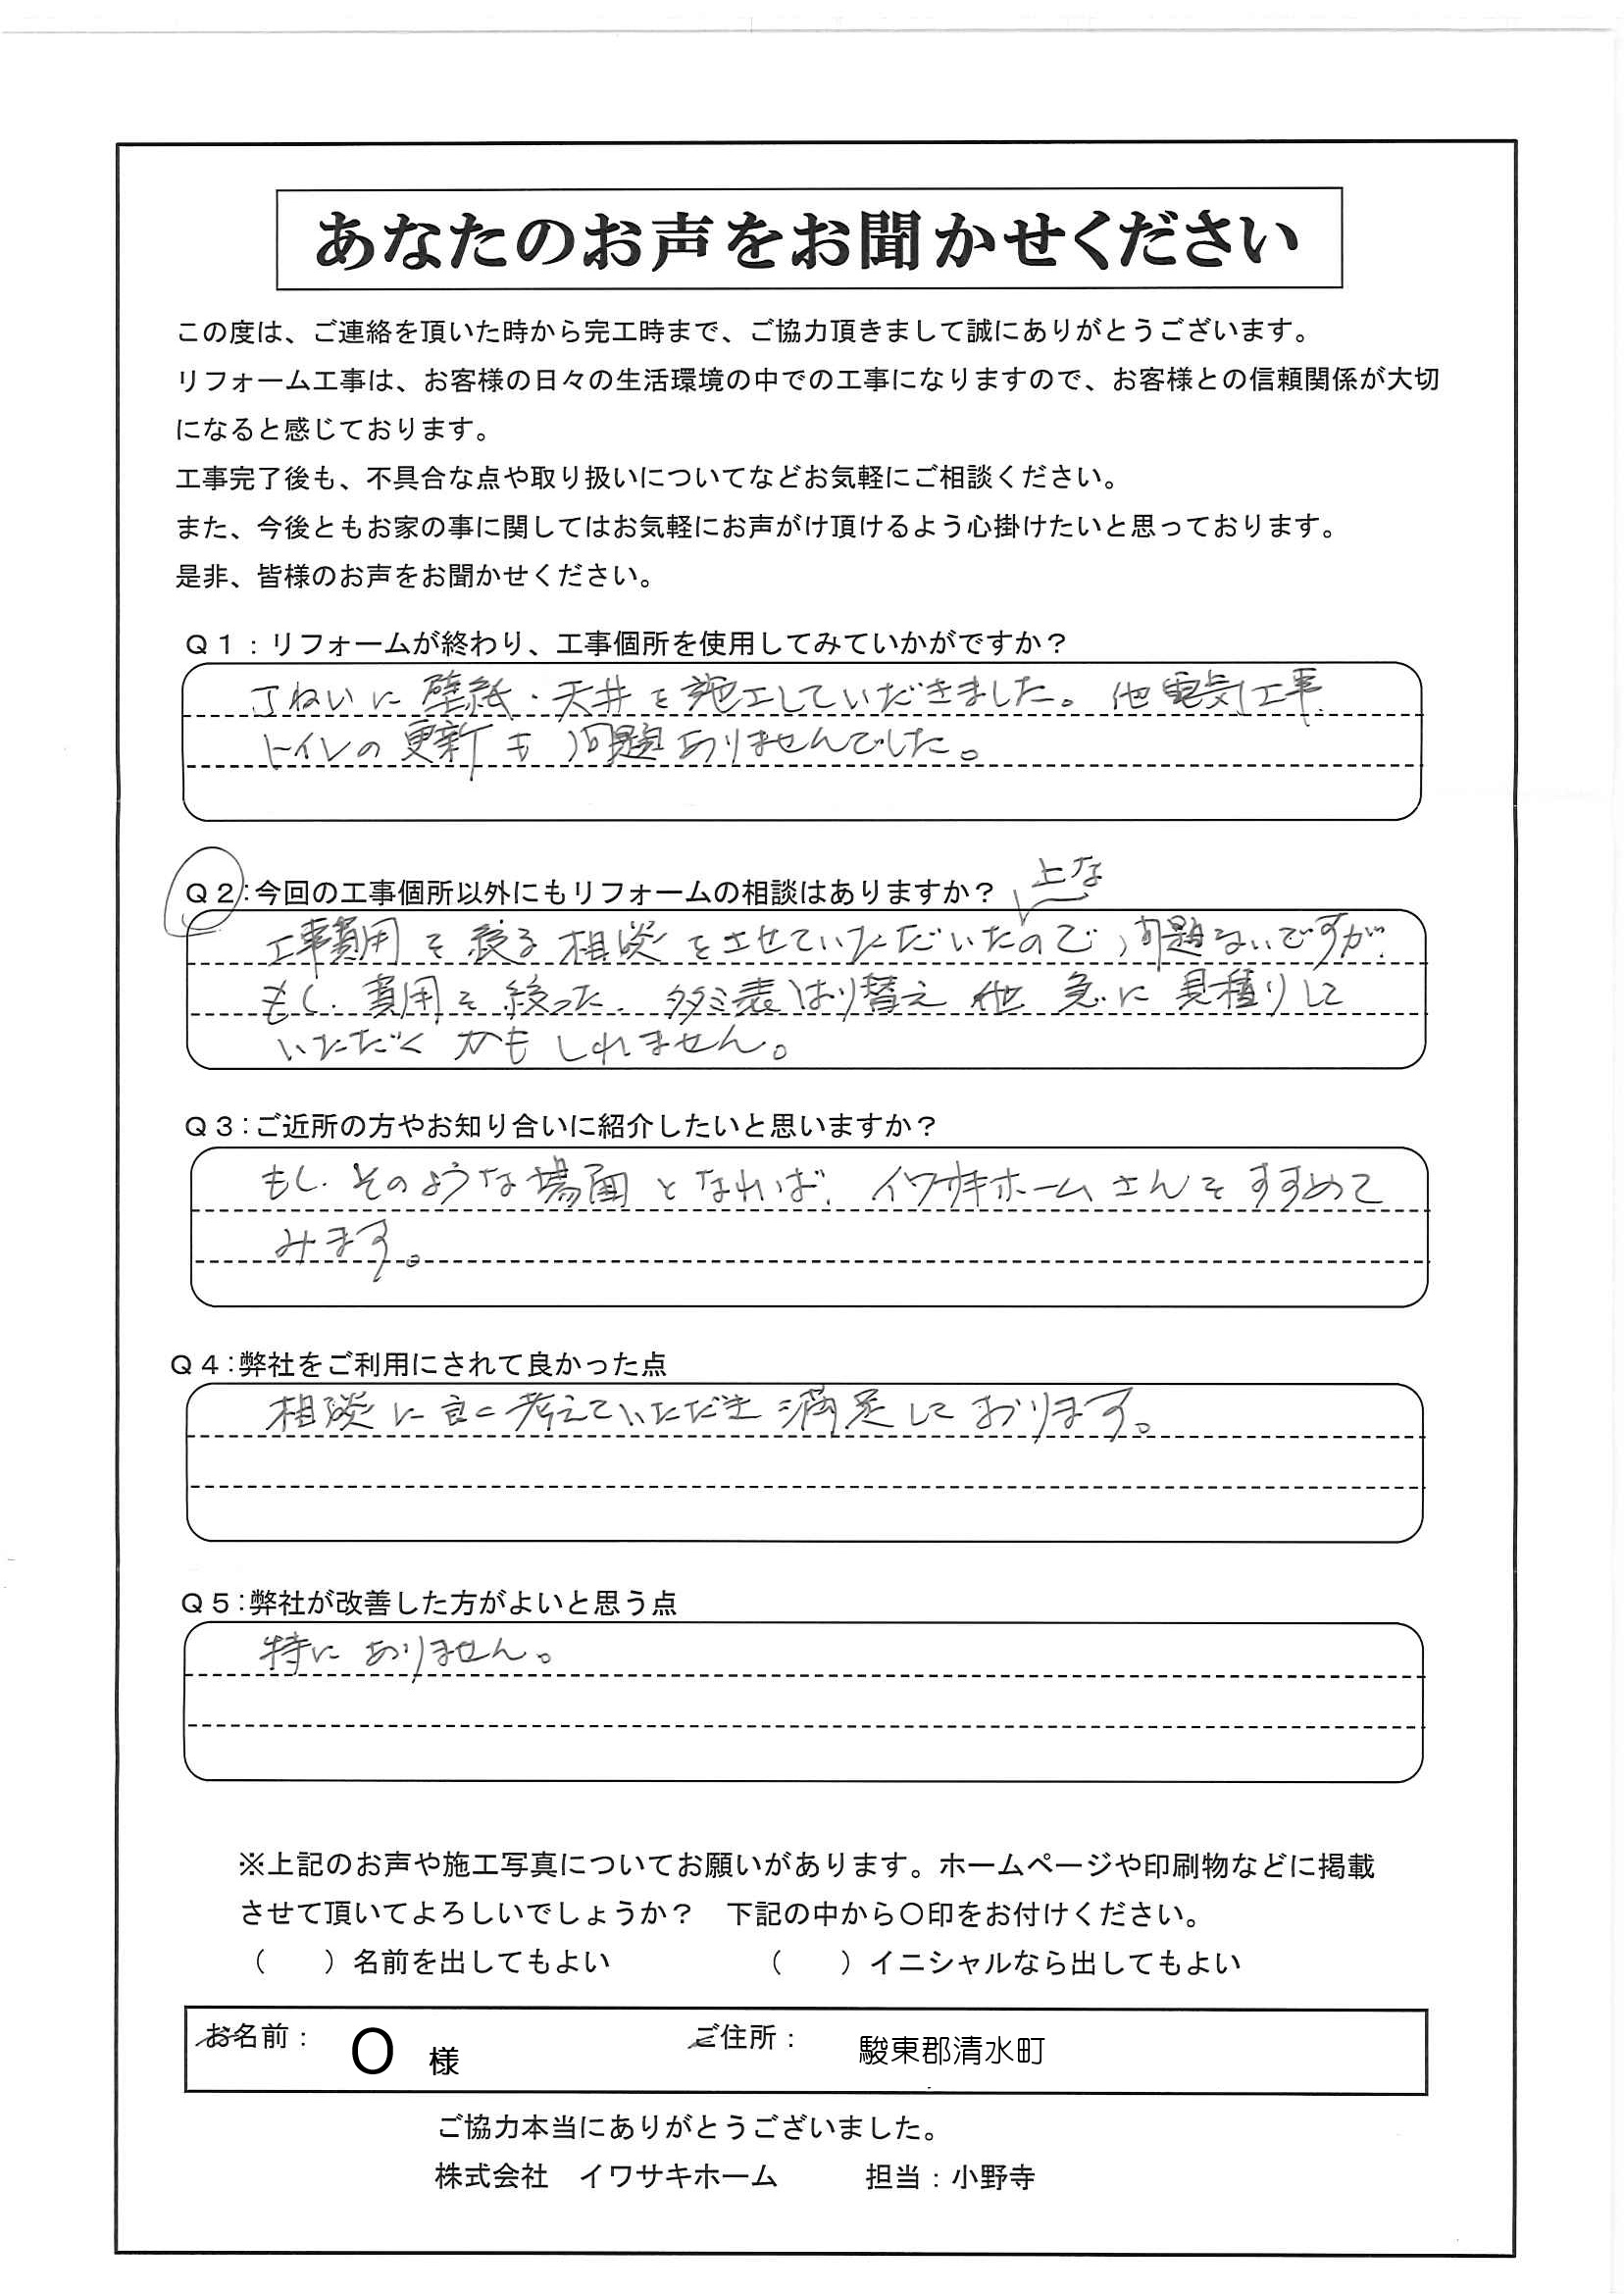 あなたのお声をお聞かせください
この度は、ご連絡を頂いた時から完工時まで、ご協力頂きまして誠にありがとうございます。
リフォーム工事は、お客様の日々の生活環境の中での工事になりますので、お客様との信頼関係が大切
になると感じております。
工事完了後も、不具合な点や取り扱いについてなどお気軽にご相談ください。
また、今後ともお家の事に関してはお気軽にお声がけ頂けるよう心掛けたいと思っております。
是非、皆様のお声をお聞かせください。
Q１：リフォームが終わり、工事個所を使用してみていかがですか？
丁ねいに 壁紙・天井を施工していだきました。他電気工事、
トイレの更新も問題ありませんでした。
Q２：今回の工事個所以外にもリフォームの相談はありますか？
上な
工事費用を絞る相談をさせていただいたので、問題ないですが、
もし、費用を絞った、タタミ表はり替え 他 急に見積りして
いただくかもしれません。
Q３：ご近所の方やお知り合いに紹介したいと思いますか？
もし、そのような場面となれば、イワサキホームさんをすすめて
みます。
Q４：弊社をご利用にされて良かった点
相談に良く考えていただき満足しております。
Q５：弊社が改善した方がよいと思う点
特にありません。
※上記のお声や施工写真についてお願いがあります。ホームページや印刷物などに掲載
させて頂いてよろしいでしょうか？　下記の中から〇印をお付けください。
（　　）名前を出してもよい　　　　　（　　）イニシャルなら出してもよい
お名前：　O 様　　　　ご住所：　駿東郡清水町
ご協力本当にありがとうございました。
株式会社　イワサキホーム　　　担当：小野寺